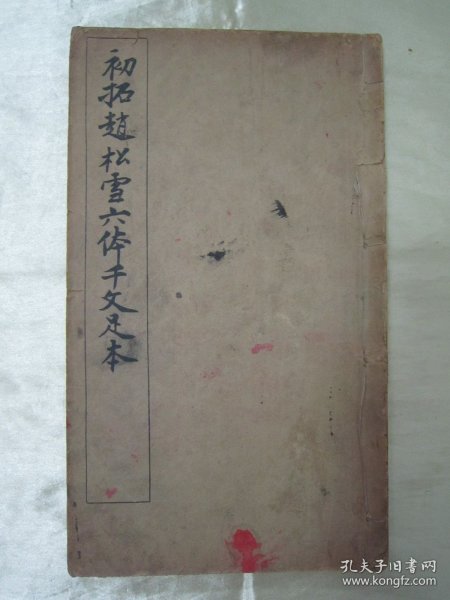 初拓趙松雪六体千文足本
孔夫子旧书网
www.kongfz.com